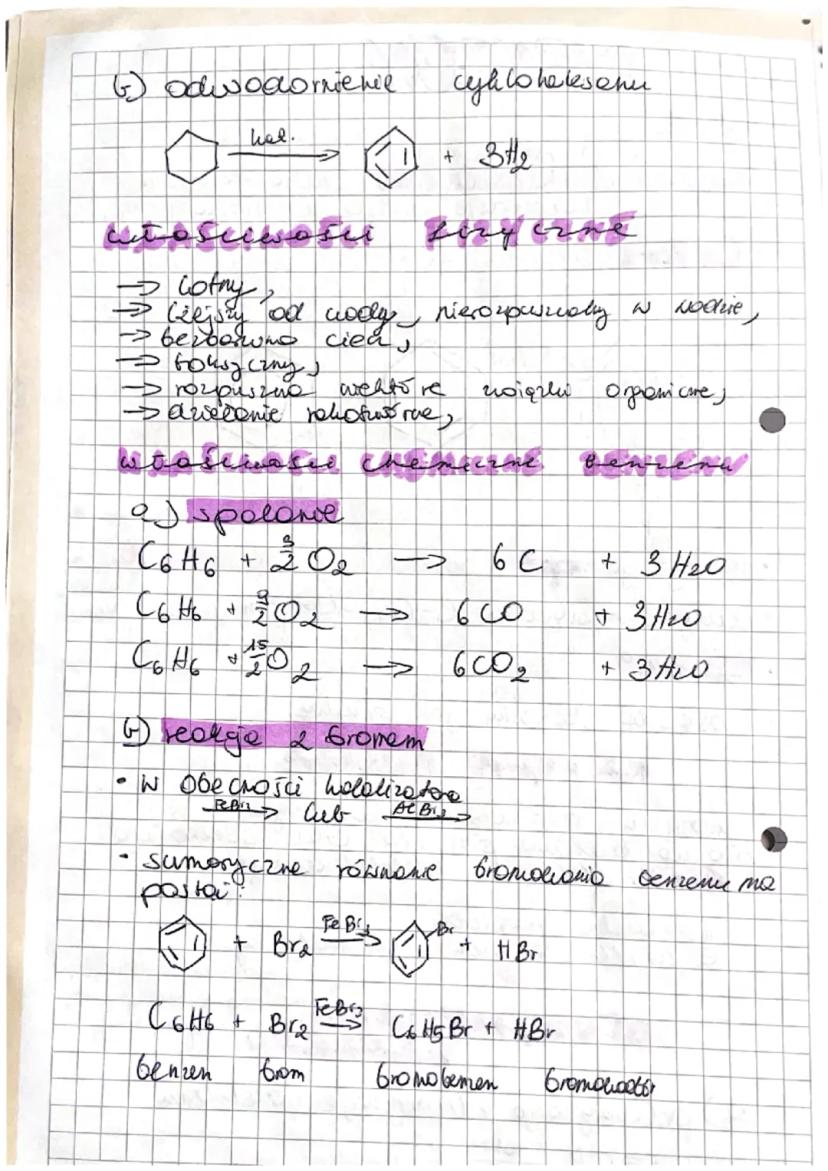 b) odwodornienie cykloheksanu
kat. → + 3H₂
właściwości fizyczne
→ lotny,
→ lżejszy od wody, nierozpuszczalny w wodzie,
→ bezbarwna ciecz,
→ toksyczny,
→ rozpuszcza niektóre związki organiczne,
→ działanie rakotwórcze,
właściwości chemiczne benzenu
a) spalanie
C₆H₆ + 3/2 O₂ → 6C + 3H₂O
C₆H₆ + 9/2 O₂ → 6CO + 3H₂O
C₆H₆ + 15/2 O₂ → 6CO₂ + 3H₂O
b) reakcja z bromem
• w obecności katalizatora
FeBr₃ → lub AlBr₃ →
• sumaryczne równanie bromowania benzenu ma
postać:
+ Br₂ FeBr₃ → Br + HBr
C₆H₆ + Br₂ FeBr₃ → C₆H₅Br + HBr
benzen brom bromobenzen bromowodór